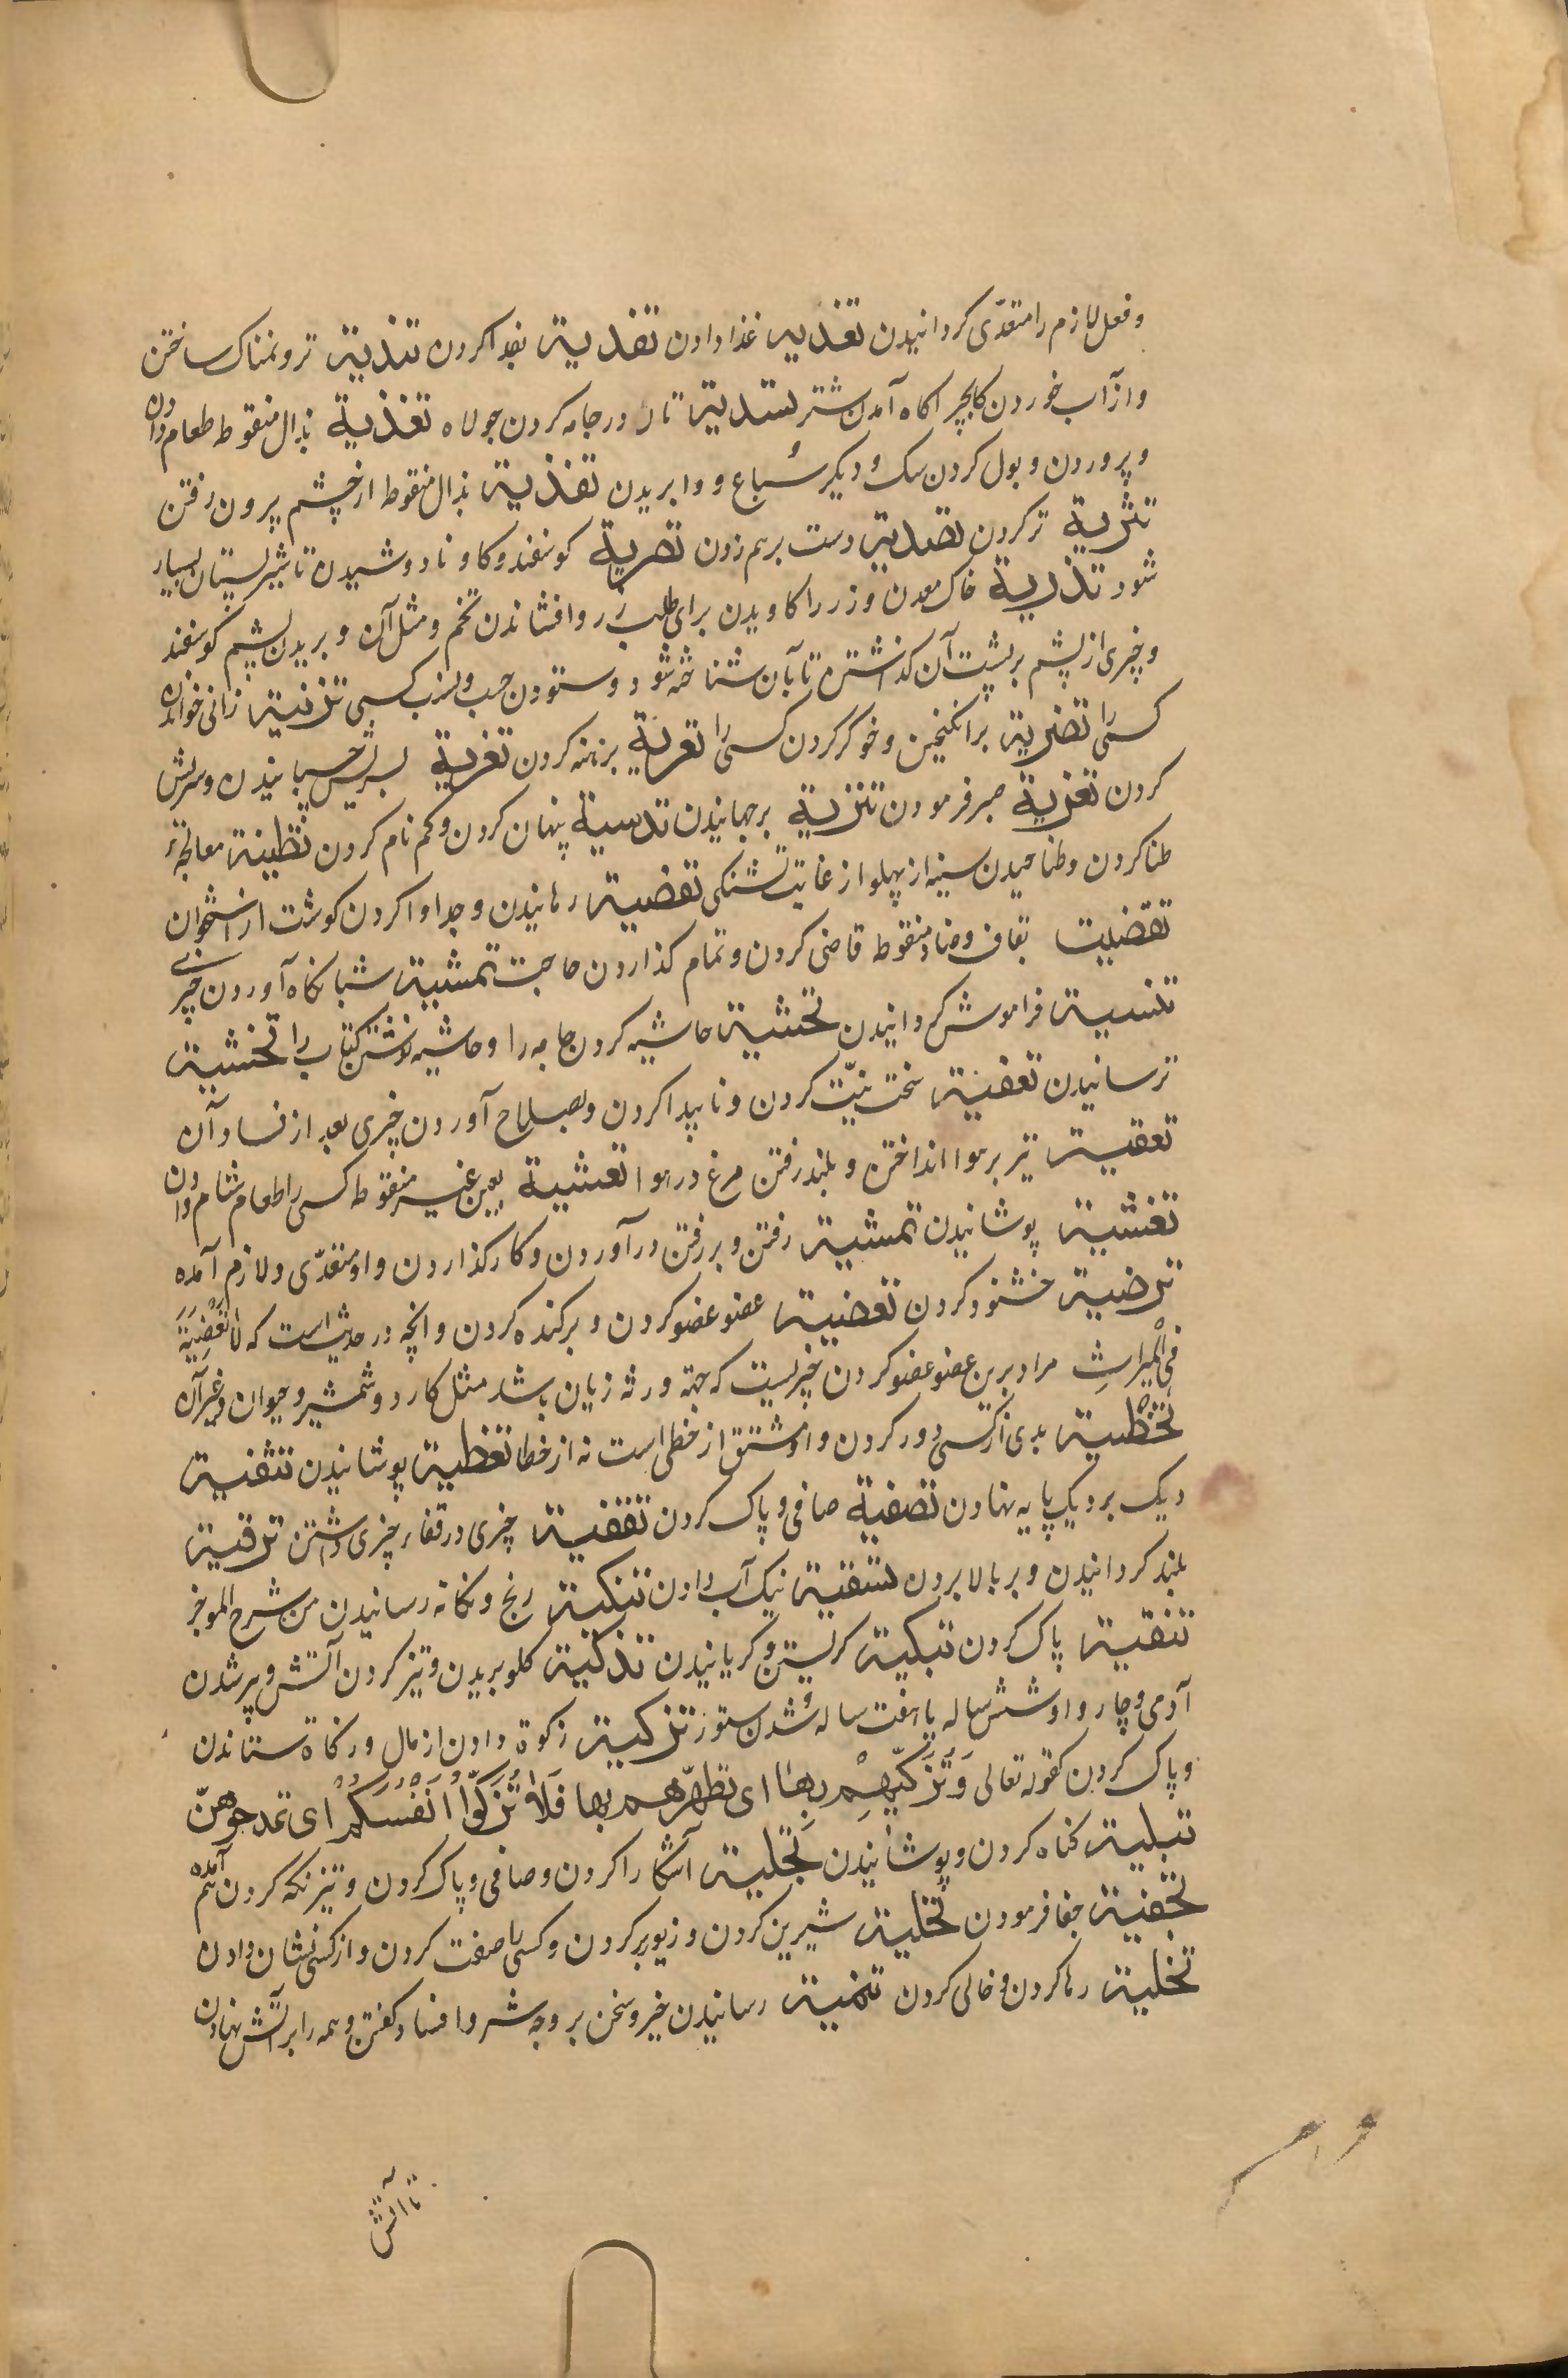 و فعل لازم را متعدّی کردانیدن تغدیه غذا دادن تفدیة بفدا کردن تندیة تر و نمناک ساختن
و از آب خوردن کابچراکاه آمدن شتر تسدیة تار در جامه کردن جولاه تغذیة بذال منقوط طعام دادن
و پروردن و بول کردن سک و دیکر سباع و وا بریدن تقذیة بذال منقوط از چشم بیرون رفتن
تثریة تر کردن تصدیة دست برهم زدن تصریة کوسفند و کاو نادوشیدن تا شیر پستان بسیار
شود تذریة خاک معدن و زر را کاویدن برای طلب زر و افشاندن تخم و مثل آن و بریدن پشم کوسفند
و چیزی از پشم بر پشت آن کذاشتن تا بآن شناخته شود و ستودن حسب و نسب کسی تزنیة زانی خواندن
کسی را تضریة برانکیختن و خوکر کردن کسی را تعریة برهنه کردن تغریة بسریش چسبانیدن و سریش
کردن تعزیة صبر فرمودن تنزیة برجهانیدن تدسیة پنهان کردن و کم نام کردن تطنیة معالجۀ
طنا کردن و طنا چسپیدن سینه از پهلو از غایت تشنکی تفصیة رهانیدن و جدا وا کردن کوشت از استخوان
تقضیت بقاف و ضاد منقوط قاضی کردن و تمام کذاردن حاجت تمسیة شبانکاه آوردن چیزی
تنسیة فراموش کردانیدن تحشیة حاشیه کردن جامه را و حاشیه نوشتن کتاب را تخشیة
ترسانیدن تعفیة سخت نیّت کردن و ناپیدا کردن و بصلاح آوردن چیزی بعد از فساد آن
تعقیة تیر بر هوا انداختن و بلند رفتن مرغ در هوا تعشیة بعین غیر منقوط کسی را طعام شام دادن
تغشیة پوشانیدن تمشیة رفتن و برفتن درآوردن و کار کذاردن و او متعدّی و لازم آمده
ترضیة خشنود کردن تعضیة عضو عضو کردن و پرکنده کردن و انچه در حدیث است که لا تَعْضِیَةَ
فی المیراثِ مراد برین عضو عضو کردن چیزیست که جهة ورثه زیان باشد مثل کارد و شمشیر و حیوان و غیر آن
تخطیة بدی از کسی دور کردن و او مشتق از خطی است نه از خطا تغطیة پوشانیدن تثفیة
دیک بر دیک پایه نهادن تصفیة صافی و پاک کردن تقفیة چیزی در قفاء چیزی داشتن ترقیة
بلند کردانیدن و بر بالا بردن تسقیة نیک آب دادن تنکیة رنج و نکاته رسانیدن من شرح الموجز
تنقیة پاک کردن تبکیة کریستن و کریانیدن تذکیة کلو بریدن و تیز کردن آتش و پیر شدن
آدمی و چاروا و شش ساله یا هفت ساله شدن ستور تزکیة زکوة دادن از مال و زکاة ستاندن
و پاک کردن کقوله تعالی وَتُزَکِّیهِمْ بِهَا ای تطهّرهم بها فَلَا تُزَکُّوا اَنْفُسَکُمْ ای تمدحوهنّ
تبلیة کناه کردن و پوشانیدن تجلیة آشکارا کردن و صافی و پاک کردن و تیز نکه کردن هم آمده
تجفیة جفا فرمودن تحلیة شیرین کردن و زیور بر کردن و کسی را صفت کردن و از کسی نشان دادن
تخلیة رها کردن و خالی کردن تنمیة رسانیدن خیر و سخن بر وجه شر و افساد کفتن و همه را بر آتش نهادن
تا آتش